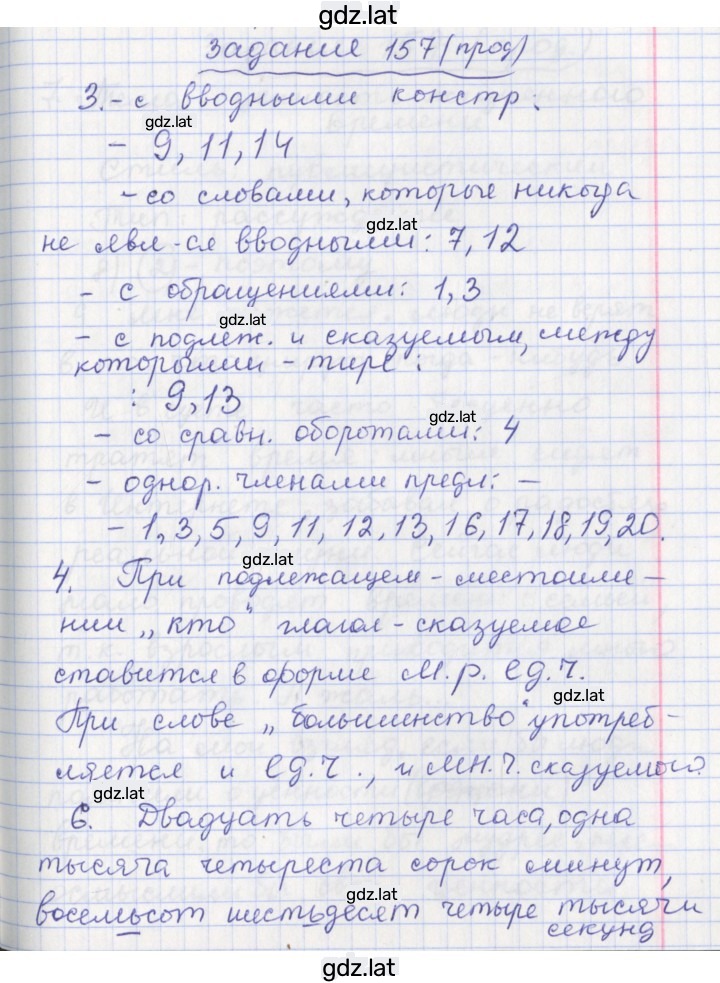 gdz.lat
задание 157 (прод)
3. - с вводными констр.
gdz.lat
- 9, 11, 14
- со словами, которые никогда
gdz.lat
не явл-ся вводными: 7, 12
- с обращениями: 1, 3
gdz.lat
- с подлеж. и сказуемым, между
которыми - тире:
: 9, 13
gdz.lat
- со сравн. оборотами: 4
- однор. членами предл: -
- 1, 3, 5, 9, 11, 12, 13, 16, 17, 18, 19, 20.
gdz.lat
4. При подлежащем - местоиме-
нии „кто" глагол-сказуемое
ставится в форме м.р. ед.ч.
gdz.lat
При слове „большинство" употреб-
ляется и ед.ч., и мн.ч. сказуемого
gdz.lat
6. Двадцать четыре часа, одна
тысяча четыреста сорок минут,
gdz.lat
восемьсот шестьдесят четыре тысячи
секунд
gdz.lat